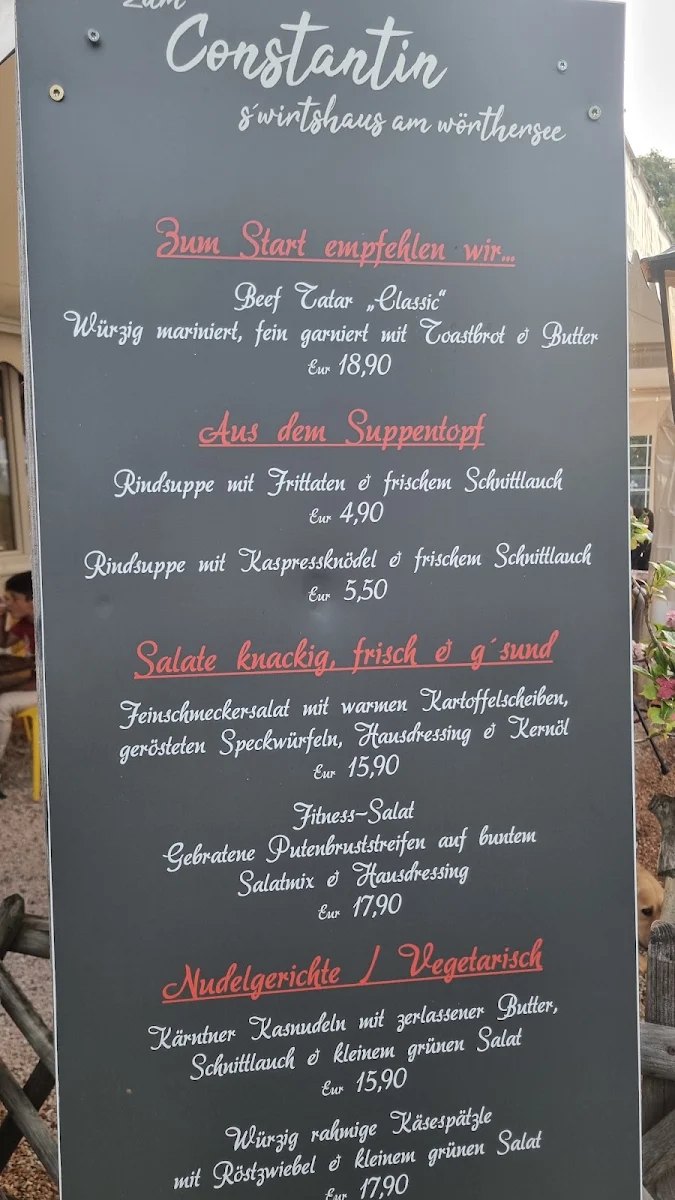 Zum
Constantin
s'wirtshaus am wörthersee
Zum Start empfehlen wir...
Beef Tatar „Classic“
Würzig mariniert, fein garniert mit Toastbrot & Butter
Eur 18,90
Aus dem Suppentopf
Rindsuppe mit Frittaten & frischem Schnittlauch
Eur 4,90
Rindsuppe mit Kaspressknödel & frischem Schnittlauch
Eur 5,50
Salate knackig, frisch & g´sund
Feinschmeckersalat mit warmen Kartoffelscheiben,
gerösteten Speckwürfeln, Hausdressing & Kernöl
Eur 15,90
Fitness-Salat
Gebratene Putenbruststreifen auf buntem
Salatmix & Hausdressing
Eur 17,90
Nudelgerichte / Vegetarisch
Kärntner Kasnudeln mit zerlassener Butter,
Schnittlauch & kleinem grünen Salat
Eur 15,90
Würzig rahmige Käsespätzle
mit Röstzwiebel & kleinem grünen Salat
Eur 17,90